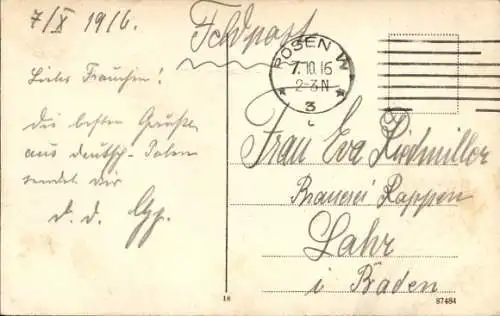 7/X 1916.
Feldpost
POSEN W
7.10.16
2-3N
* 3 *
c
Liebes Frauchen!
Die besten Grüße
aus deutsch-Polen
sendet Dir
D. D.
Frau Eva Liedmiller
Brauerei Rappen
Lahr
i Baden
18
87484